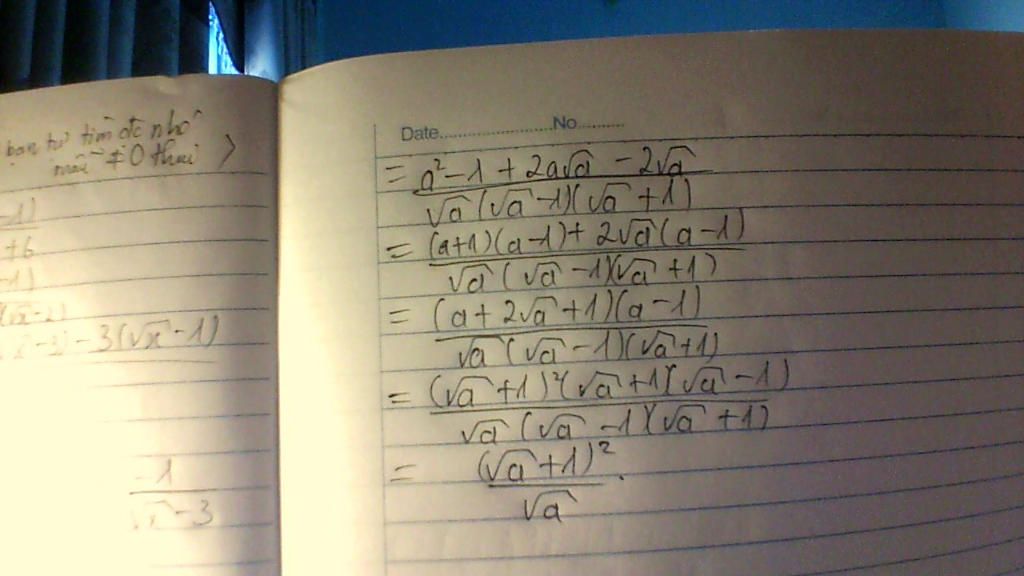 bạn tự tìm đc nhớ
mẫu ≠ 0 thui >
-1)
+6
-1)
(√x-2)
- 3(√x - 1)
-1
√x - 3
Date No
= a² - 1 + 2a√a - 2√a
√a (√a - 1)(√a + 1)
= (a+1)(a-1) + 2√a (a-1)
√a (√a - 1)(√a + 1)
= (a + 2√a + 1)(a - 1)
√a (√a - 1)(√a + 1)
= (√a + 1)² (√a + 1)(√a - 1)
√a (√a - 1)(√a + 1)
= (√a + 1)² .
√a